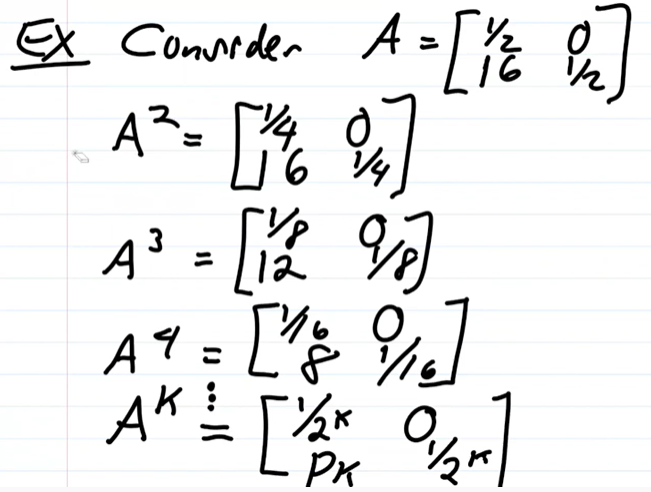 Ex Consider A = [1/2 0
16 1/2]
A² = [1/4 0
16 1/4]
A³ = [1/8 0
12 1/8]
A⁴ = [1/16 0
8 1/16]
⋮
Aᴷ = [1/2ᴷ 0
PK 1/2ᴷ]